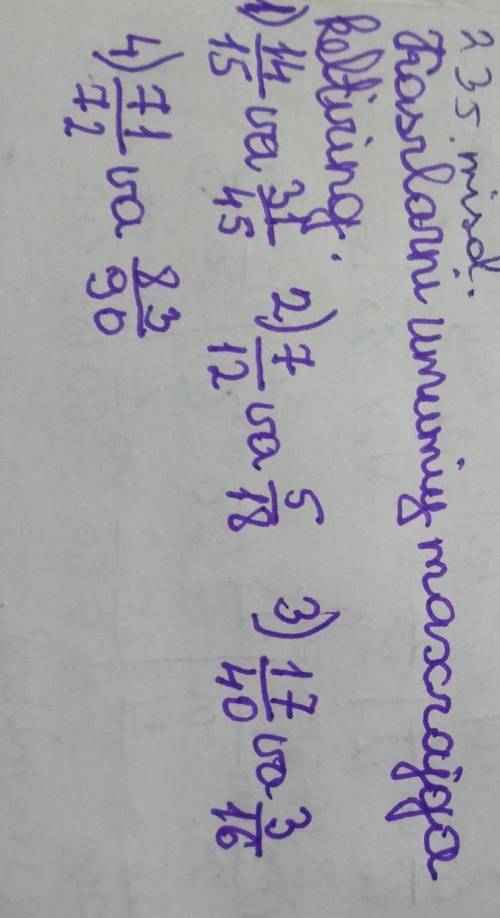 235. misol.
Kasrlarni umumiy maxrajga
keltiring.
1) 14/15 va 31/45 2) 7/12 va 5/18 3) 17/40 va 3/16
4) 71/72 va 83/90